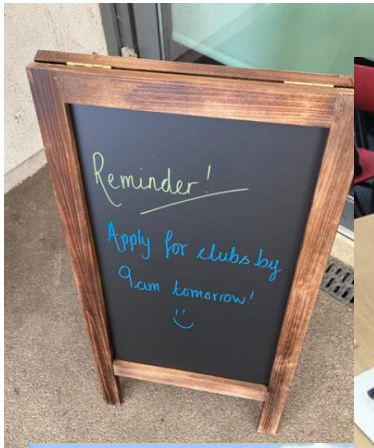 Reminder!
Apply for clubs by
9am tomorrow!